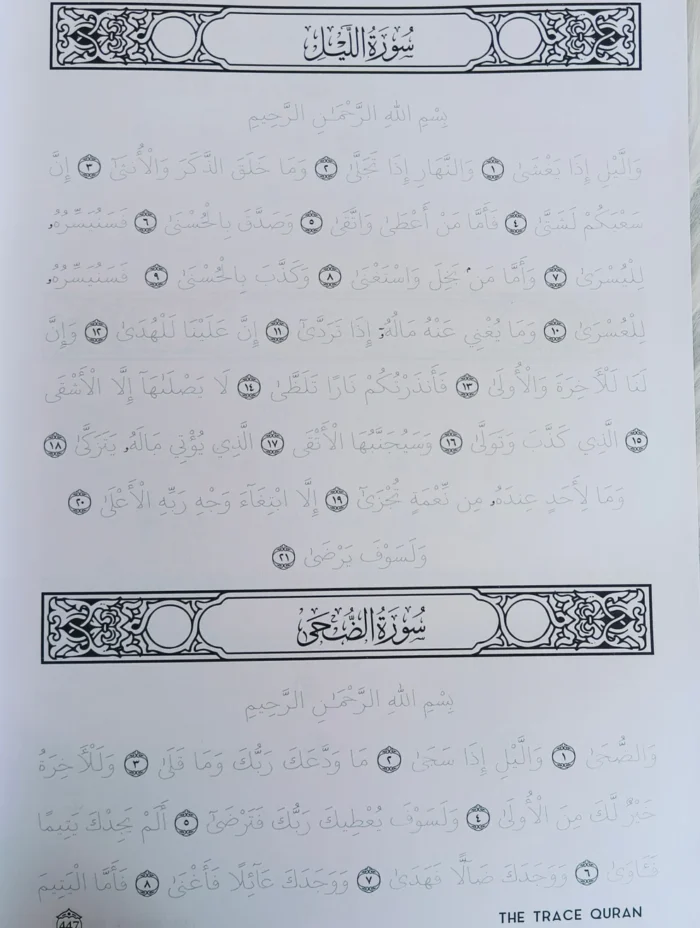 سُورَةُ اللَّيْلِ
بِسْمِ اللهِ الرَّحْمَـٰنِ الرَّحِيمِ
وَالَّيْلِ إِذَا يَغْشَىٰ ١ وَالنَّهَارِ إِذَا تَجَلَّىٰ ٢ وَمَا خَلَقَ الذَّكَرَ وَالْأُنثَىٰٓ ٣ إِنَّ
سَعْيَكُمْ لَشَتَّىٰ ٤ فَأَمَّا مَنْ أَعْطَىٰ وَاتَّقَىٰ ٥ وَصَدَّقَ بِالْحُسْنَىٰ ٦ فَسَنُيَسِّرُهُۥ
لِلْيُسْرَىٰ ٧ وَأَمَّا مَنۢ بَخِلَ وَاسْتَغْنَىٰ ٨ وَكَذَّبَ بِالْحُسْنَىٰ ٩ فَسَنُيَسِّرُهُۥ
لِلْعُسْرَىٰ ١٠ وَمَا يُغْنِي عَنْهُ مَالُهُۥٓ إِذَا تَرَدَّىٰٓ ١١ إِنَّ عَلَيْنَا لَلْهُدَىٰ ١٢ وَإِنَّ
لَنَا لَلْآخِرَةَ وَالْأُولَىٰ ١٣ فَأَنذَرْتُكُمْ نَارًا تَلَظَّىٰ ١٤ لَا يَصْلَىٰهَآ إِلَّا الْأَشْقَى
١٥ الَّذِي كَذَّبَ وَتَوَلَّىٰ ١٦ وَسَيُجَنَّبُهَا الْأَتْقَى ١٧ الَّذِي يُؤْتِي مَالَهُۥ يَتَزَكَّىٰ ١٨
وَمَا لِأَحَدٍ عِندَهُۥ مِن نِّعْمَةٍ تُجْزَىٰٓ ١٩ إِلَّا ابْتِغَآءَ وَجْهِ رَبِّهِ الْأَعْلَىٰ ٢٠
وَلَسَوْفَ يَرْضَىٰ ٢١
سُورَةُ الضُّحَىٰ
بِسْمِ اللهِ الرَّحْمَـٰنِ الرَّحِيمِ
وَالضُّحَىٰ ١ وَالَّيْلِ إِذَا سَجَىٰ ٢ مَا وَدَّعَكَ رَبُّكَ وَمَا قَلَىٰ ٣ وَلَلْآخِرَةُ
خَيْرٌ لَّكَ مِنَ الْأُولَىٰ ٤ وَلَسَوْفَ يُعْطِيكَ رَبُّكَ فَتَرْضَىٰٓ ٥ أَلَمْ يَجِدْكَ يَتِيمًا
فَـَٔاوَىٰ ٦ وَوَجَدَكَ ضَآلًّا فَهَدَىٰ ٧ وَوَجَدَكَ عَآئِلًا فَأَغْنَىٰ ٨ فَأَمَّا الْيَتِيمَ
447
THE TRACE QURAN